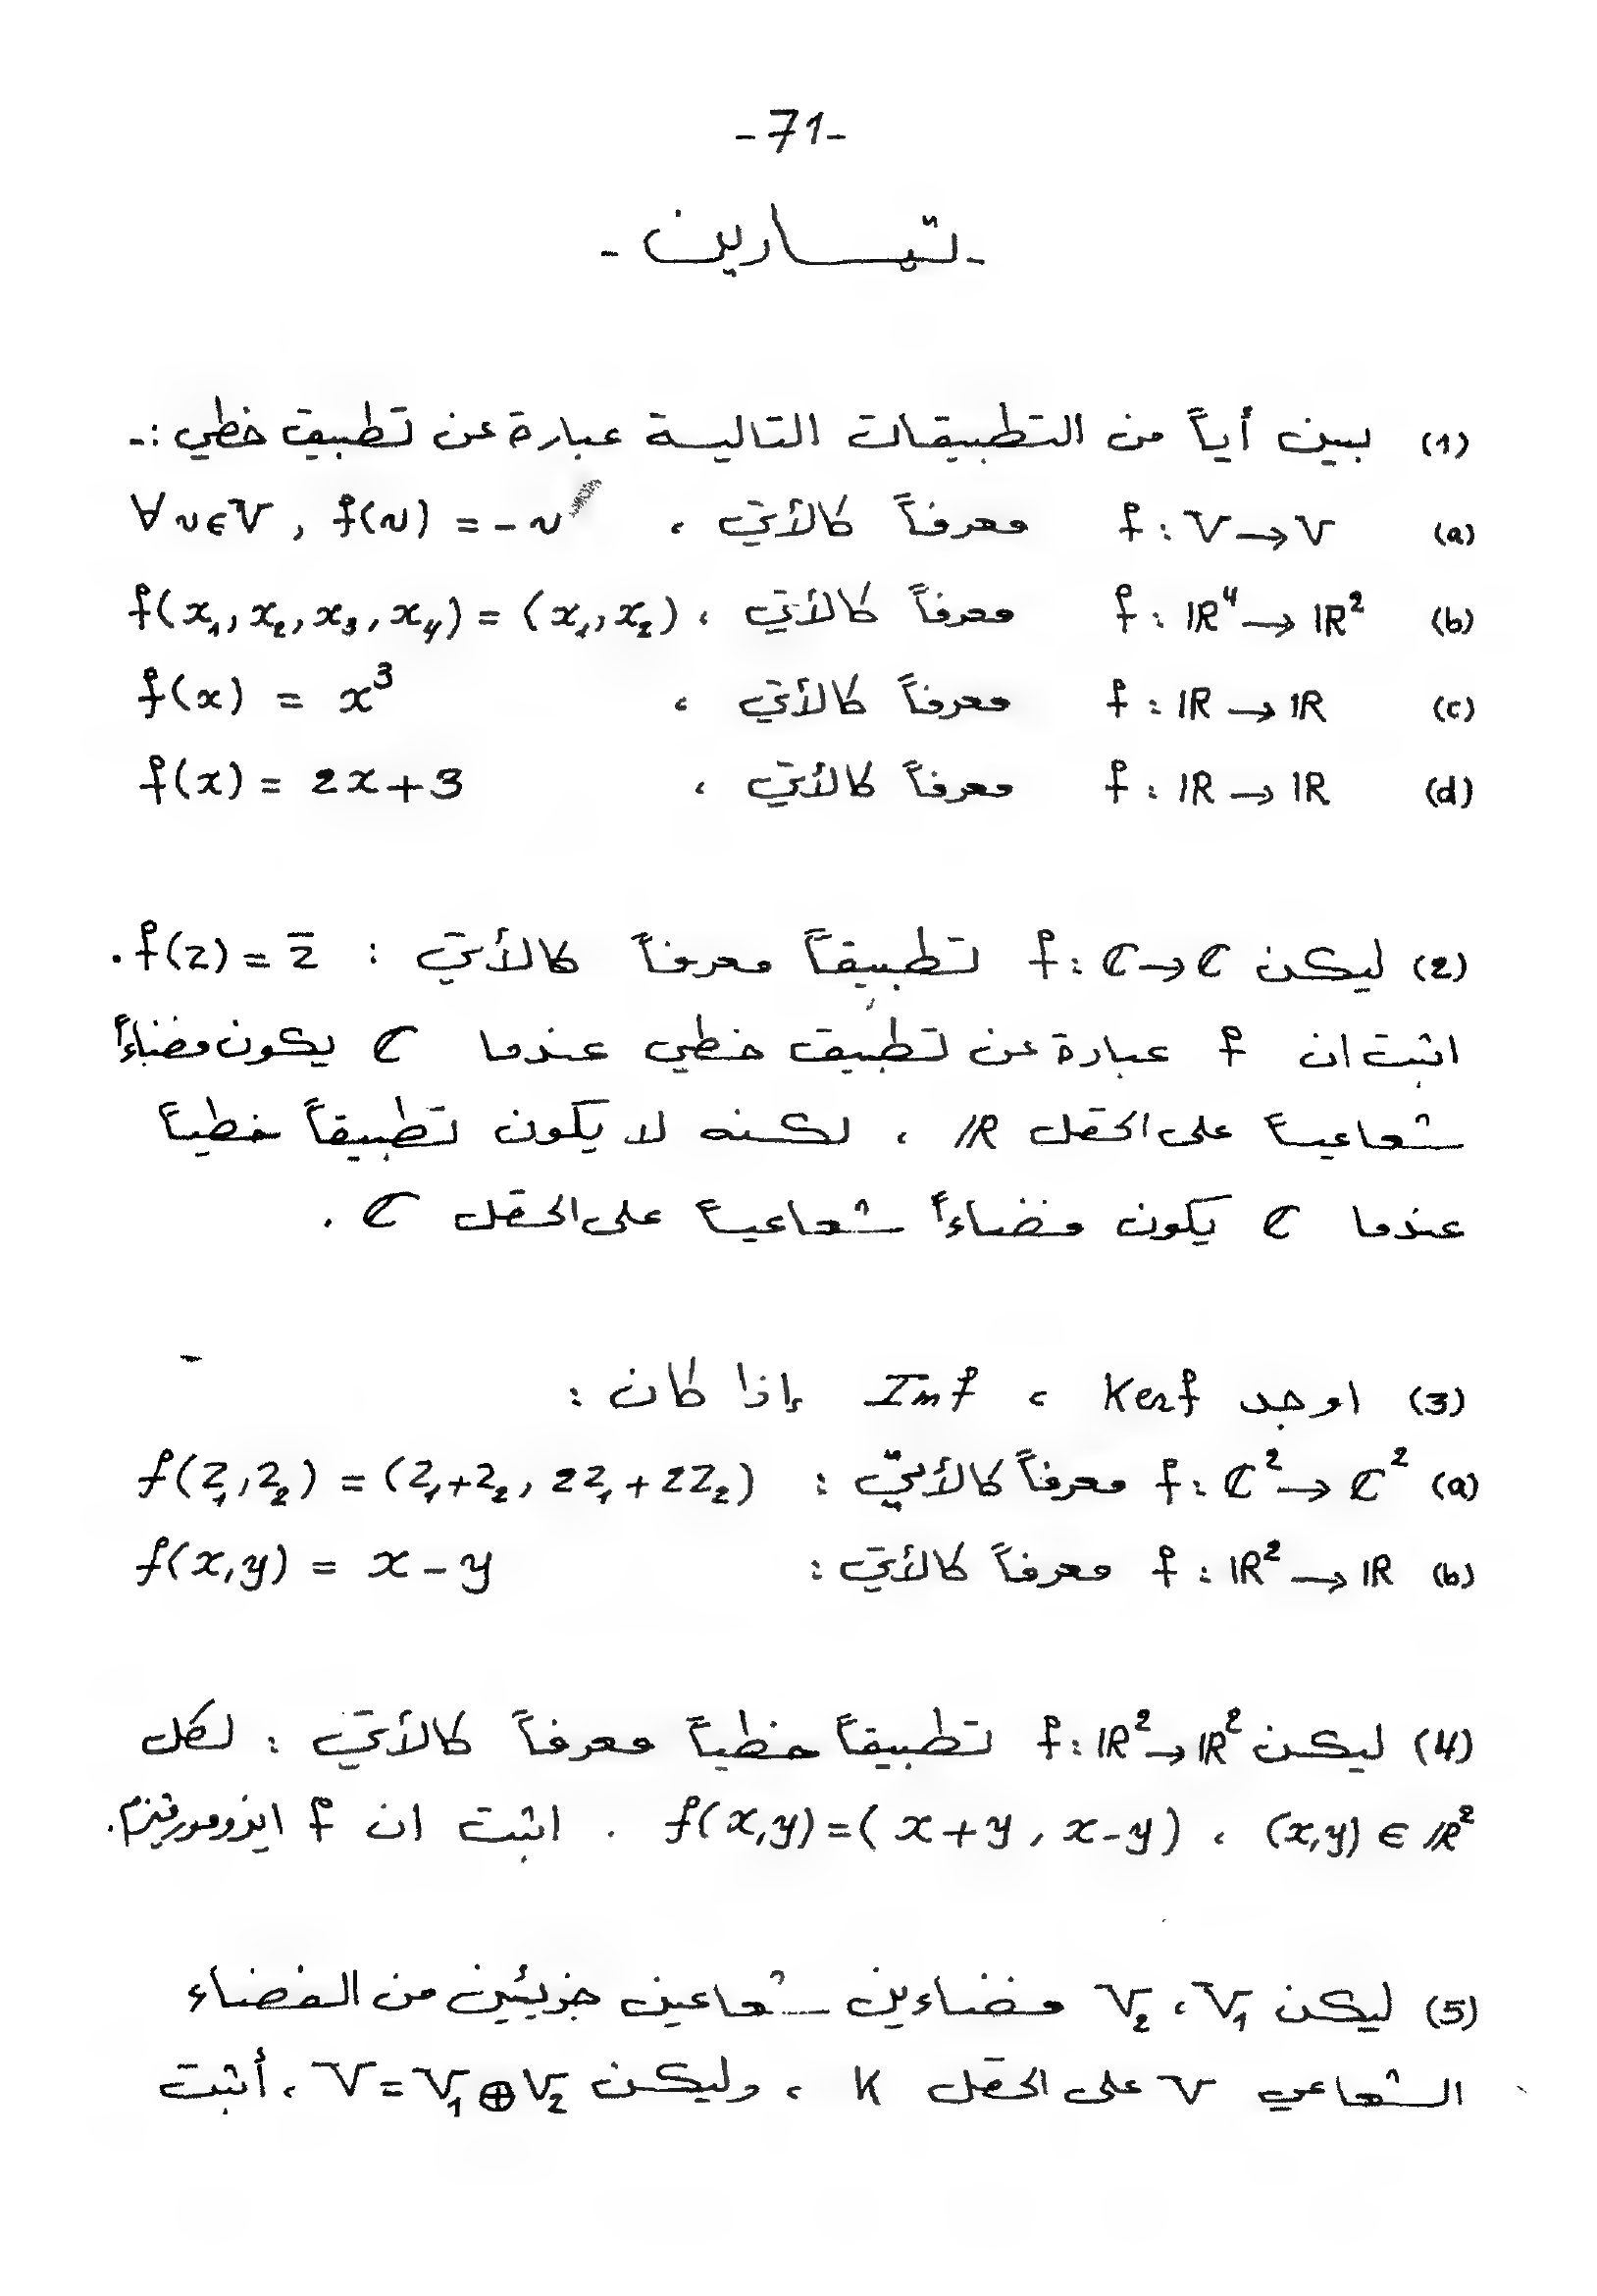 -71-
- تمارين -
(1) بين أياً من التطبيقات التالية عبارة عن تطبيق خطي :-
(a) f : V → V معرفاً كالأتي ، ∀ v ∈ V , f(v) = -v
(b) f : ℝ⁴ → ℝ² معرفاً كالأتي ، f(x₁, x₂, x₃, x₄) = (x₁, x₂)
(c) f : ℝ → ℝ معرفاً كالأتي ، f(x) = x³
(d) f : ℝ → ℝ معرفاً كالأتي ، f(x) = 2x+3
(2) ليكن f : ℂ → ℂ تطبيقاً معرفاً كالأتي : f(z) = z̄ .
اثبت ان f عبارة عن تطبيق خطي عندما ℂ يكون فضاءاً
شعاعياً على الحقل ℝ ، لكنه لا يكون تطبيقاً خطياً
عندما ℂ يكون فضاءاً شعاعياً على الحقل ℂ .
(3) اوجد Ker f ، Im f إذا كان :
(a) f : ℂ² → ℂ² معرفاً كالأتي : f(z₁, z₂) = (z₁+z₂, 2z₁+2z₂)
(b) f : ℝ² → ℝ معرفاً كالأتي : f(x,y) = x - y
(4) ليكن f : ℝ² → ℝ² تطبيقاً خطياً معرفاً كالأتي : لكل
(x,y) ∈ ℝ² ، f(x,y) = (x+y, x-y) . اثبت ان f ايزومورفيزم.
(5) ليكن V₁ ، V₂ فضاءين شعاعين جزيئين من الفضاء
الشعاعي V على الحقل K ، وليكن V = V₁ ⊕ V₂ ، أثبت